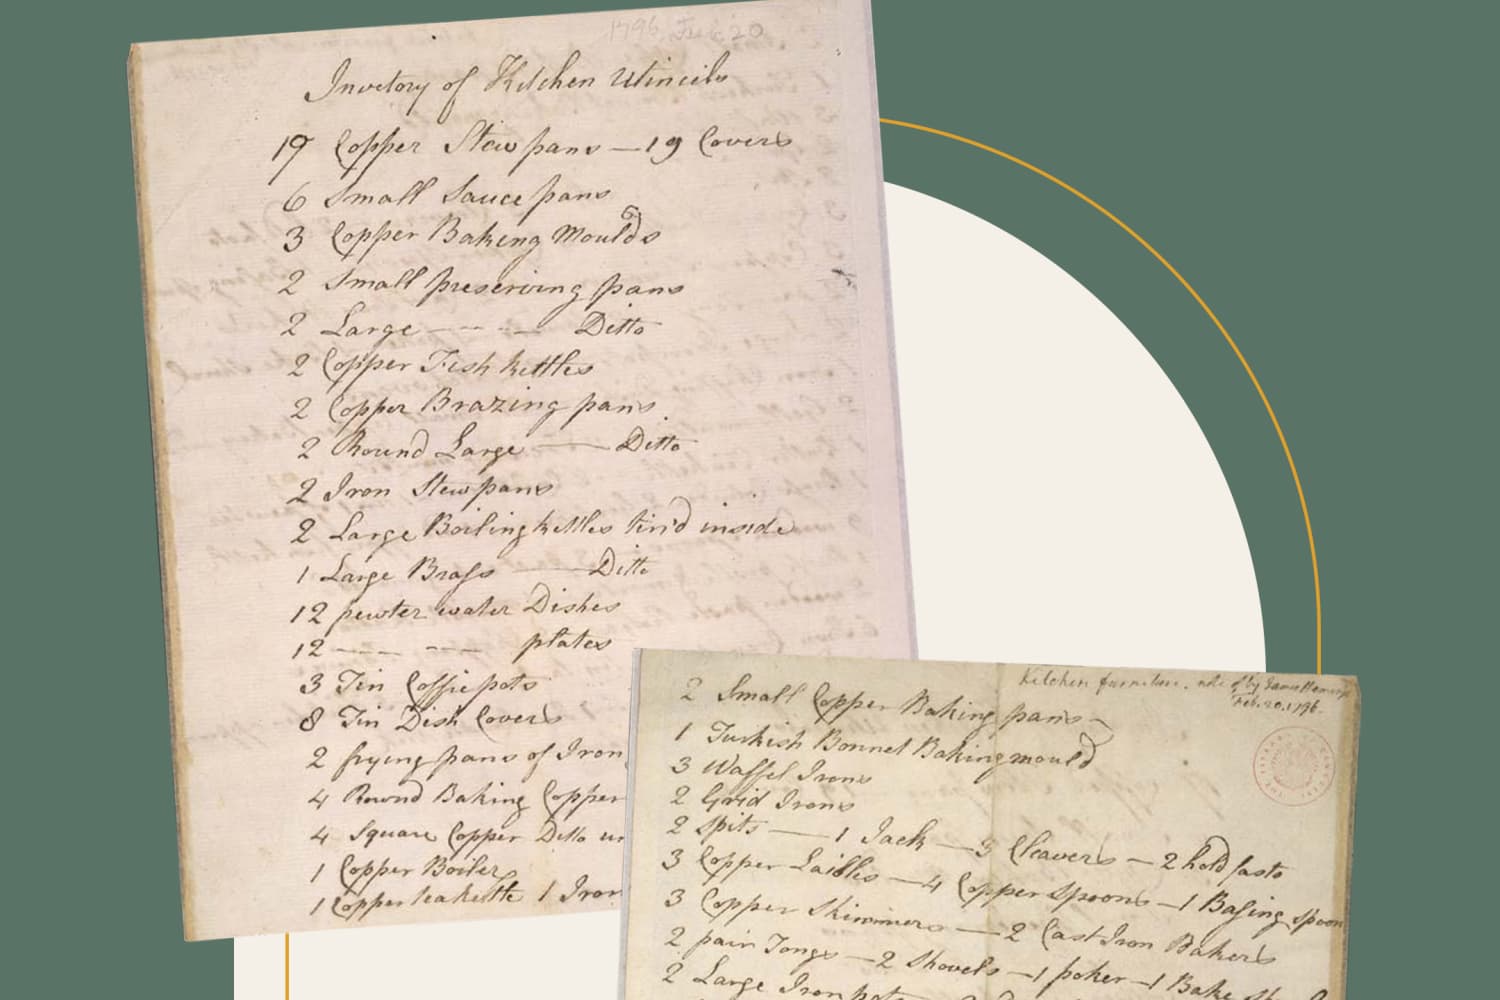 1796, Feb 20
Invetory of Kitchen Utincils
19 Copper Stewpans — 19 Covers
6 Small Saucepans
3 Copper Baking Moulds
2 Small preserving pans
2 Large — — — Ditto
2 Copper Fish kettles
2 Copper Brazing pans
2 Round Large — Ditto
2 Iron Stewpans
2 Large Boiling kettles tin'd inside
1 Large Brass — Ditto
12 pewter water Dishes
12 — — plates
3 Tin Coffie pots
8 Tin Dish Covers
2 frying pans of Iron
4 Round Baking Copper
4 Square Copper Ditto
1 Copper Boiler
1 Copper teakettle 1 Iron
Kitchen furniture. note of by James
Feb. 20. 1796.
2 Small Copper Baking pans —
1 Turkish Bonnet Baking mould
3 Waffel Irons
2 Grid Irons
2 Spits — 1 Jack — 3 Cleavers — 2 hold fasts
3 Copper Laidles — 4 Copper Spoons — 1 Basing Spoon
3 Copper Skimmers — 2 Cast Iron Bakers
2 pair Tongs — 2 Shovels — 1 poker — 1 Bake
2 Large Iron pots